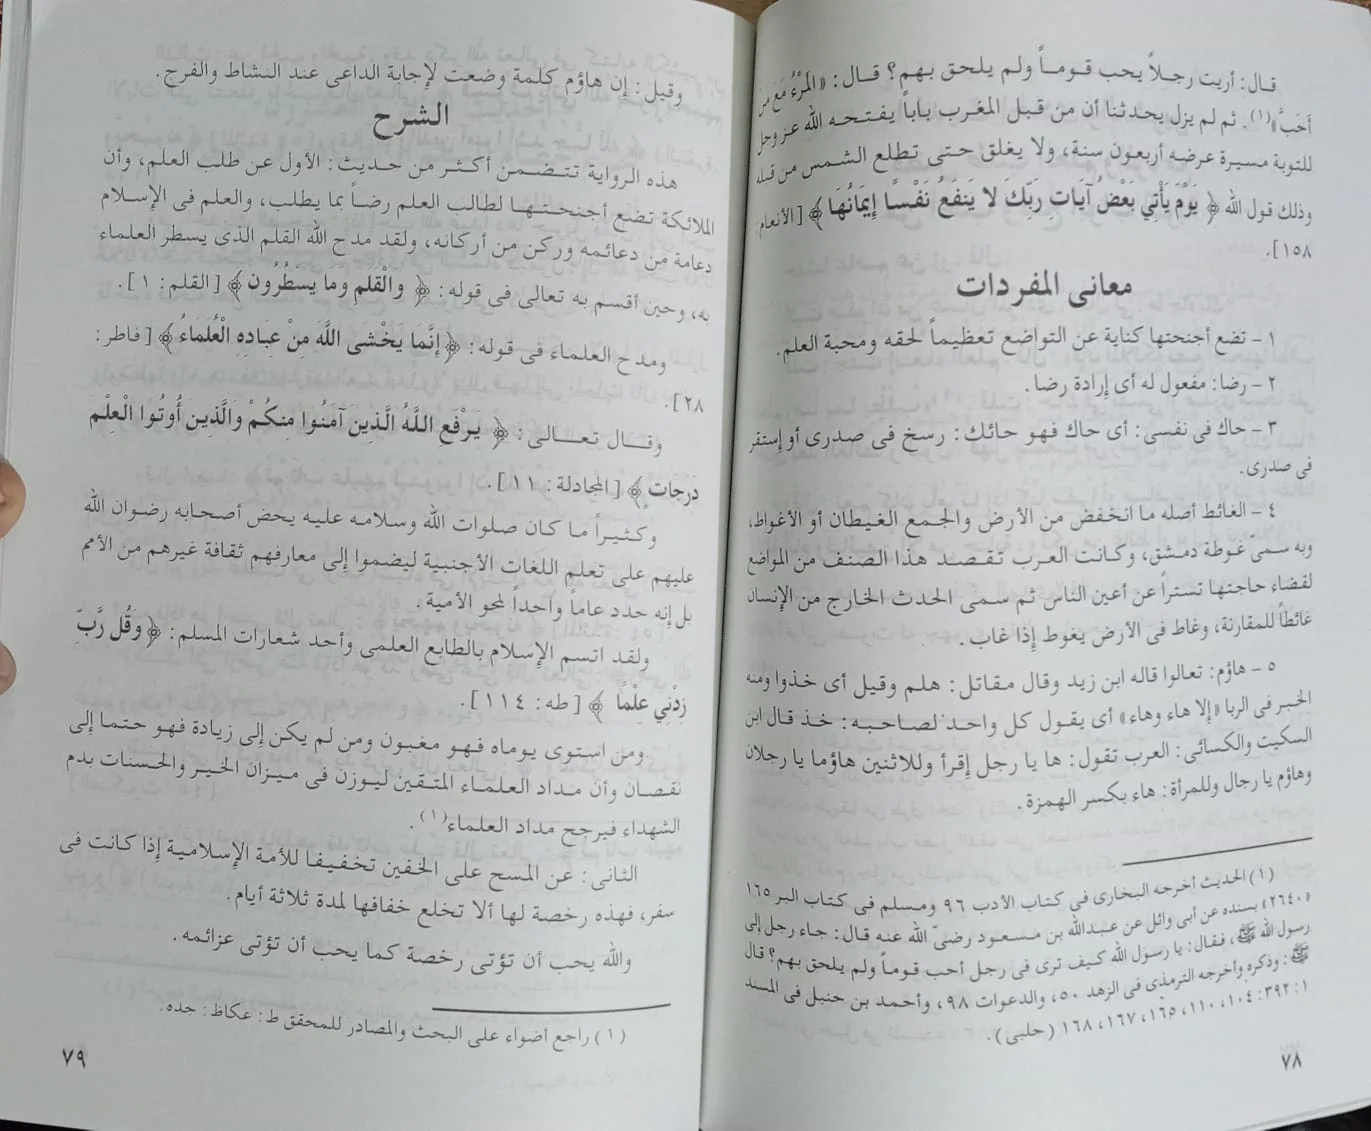 قال: أريت رجلاً يحب قوماً ولم يلحق بهم؟ قال: «المَرْءُ مَعَ مَن
أحَبَّ»(١). ثم لم يزل يحدثنا أن من قبل المغرب باباً يفتحه الله عز وجل
للتوبة مسيرة عرضه أربعون سنة، ولا يغلق حتى تطلع الشمس من قبله
وذلك قول الله ﴿ يَوْمَ يَأْتِي بَعْضُ آيَاتِ رَبِّكَ لا يَنفَعُ نَفْسًا إِيمَانُهَا ﴾ [الأنعام:
١٥٨].
معانى المفردات
١ - تضع أجنحتها كناية عن التواضع تعظيماً لحقه ومحبة العلم.
٢ - رضا: مفعول له أى إرادة رضا.
٣ - حاك فى نفسى: أى حاك فهو حائك: رسخ فى صدرى أو إستقر
فى صدرى.
٤ - الغائط أصله ما انخفض من الأرض والجمع الغيطان أو الأغواط،
وبه سمىّ غوطة دمشق، وكانت العرب تقصد هذا الصنف من المواضع
لقضاء حاجتها تستراً عن أعين الناس ثم سمى الحدث الخارج من الإنسان
غائطاً للمقارنة، وغاط فى الأرض يغوط إذا غاب.
٥ - هاؤم: تعالوا قاله ابن زيد وقال مقاتل: هلم وقيل أى خذوا ومنه
الخبر فى الربا «إلا هاء وهاء» أى يقول كل واحد لصاحبه: خذ قال ابن
السكيت والكسائى: العرب تقول: ها يا رجل إقرأ وللاثنين هاؤما يا رجلان
وهاؤم يا رجال وللمرأة: هاء بكسر الهمزة.
(١) الحديث أخرجه البخارى فى كتاب الأدب ٩٦ ومسلم فى كتاب البر ١٦٥
«٢٦٤٠» بسنده عن أبى وائل عن عبدالله بن مسعود رضىّ الله عنه قال: جاء رجل إلى
رسول الله ﷺ، فقال: يا رسول الله كيف ترى فى رجل أحب قوماً ولم يلحق بهم؟ قال
ﷺ: وذكره وأخرجه الترمذى فى الزهد ٥٠، والدعوات ٩٨، وأحمد بن حنبل فى المسند
١: ٣٩٢: ١٠٤، ١١٠، ١٦٥، ١٦٧، ١٦٨ (حلبى).
٧٨
وقيل: إن هاؤم كلمة وضعت لإجابة الداعى عند النشاط والفرح.
الشرح
هذه الرواية تتضمن أكثر من حديث: الأول عن طلب العلم، وأن
الملائكة تضع أجنحتها لطالب العلم رضاً بما يطلب، والعلم فى الإسلام
دعامة من دعائمه وركن من أركانه، ولقد مدح الله القلم الذى يسطر العلماء
به، وحين أقسم به تعالى فى قوله: ﴿ وَالْقَلَمِ وَمَا يَسْطُرُونَ ﴾ [القلم: ١].
ومدح العلماء فى قوله: ﴿ إِنَّمَا يَخْشَى اللَّهَ مِنْ عِبَادِهِ الْعُلَمَاءُ ﴾ [فاطر:
٢٨].
وقال تعالى: ﴿ يَرْفَعِ اللَّهُ الَّذِينَ آمَنُوا مِنكُمْ وَالَّذِينَ أُوتُوا الْعِلْمَ
دَرَجَاتٍ ﴾ [المجادلة: ١١].
وكثيراً ما كان صلوات الله وسلامه عليه يحض أصحابه رضوان الله
عليهم على تعلم اللغات الأجنبية ليضموا إلى معارفهم ثقافة غيرهم من الأمم
بل إنه حدد عاماً واحداً لمحو الأمية.
ولقد اتسم الإسلام بالطابع العلمى وأحد شعارات المسلم: ﴿ وَقُل رَّبِّ
زِدْنِي عِلْمًا ﴾ [طه: ١١٤].
ومن استوى يوماه فهو مغبون ومن لم يكن إلى زيادة فهو حتما إلى
نقصان وأن مداد العلماء المتقين ليوزن فى ميزان الخير والحسنات بدم
الشهداء فيرجح مداد العلماء(١).
الثانى: عن المسح على الخفين تخفيفا للأمة الإسلامية إذا كانت فى
سفر، فهذه رخصة لها ألا تخلع خفافها لمدة ثلاثة أيام.
والله يحب أن تؤتى رخصة كما يحب أن تؤتى عزائمه.
(١) راجع أضواء على البحث والمصادر للمحقق ط: عكاظ: جده.
٧٩